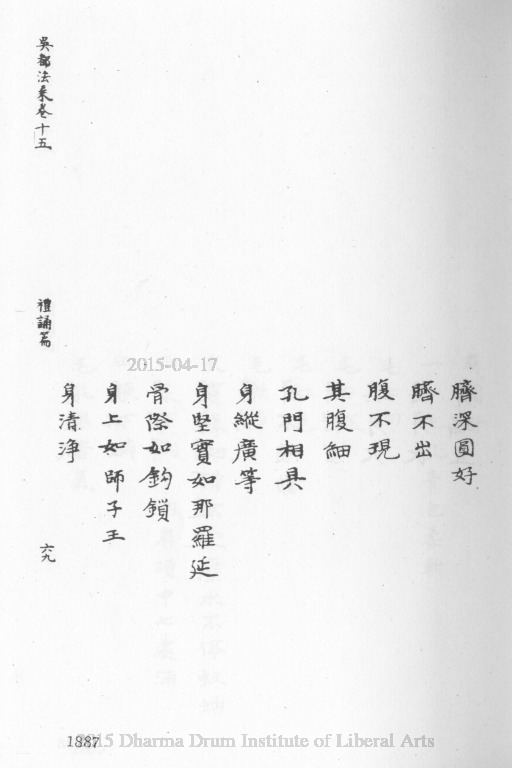 臍深圓好
臍不出
腹不現
其腹細
孔門相具
身縱廣等
身堅實如那羅延
骨際如鈎鎖
身上如師子王
身清淨
吳都法乘卷十五
禮誦篇
六九
2015-04-17
1887
2015 Dharma Drum Institute of Liberal Arts